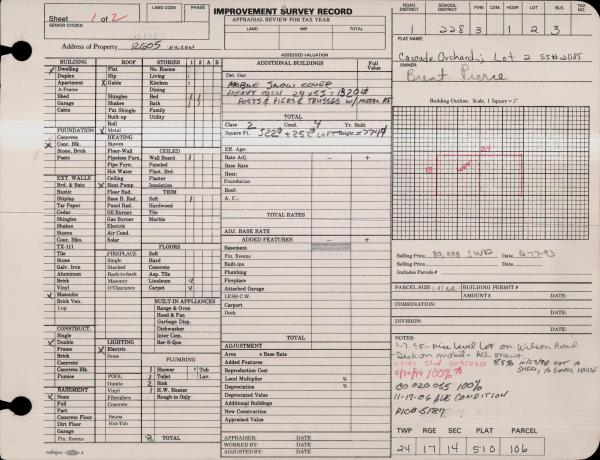 Sheet 1 of 2
SENIOR CITIZEN
LAND CODE
PROPERTY CODE
12605
Address of Property 12605 WILSON
IMPROVEMENT SURVEY RECORD
APPRAISAL REVIEW FOR TAX YEAR
LAND IMP TOTAL
ASSESSED VALUATION
ROAD DISTRICT
SCHOOL DISTRICT
FIRE CEM. HOSP. LIB.
TAX NO
228 3 1 2 3
PLAT NAME
Cascade Orchards, Lot 2 SS# 2085
OWNER
Brent Pierce
Building Outline: Scale, 1 Square =
24
18
LOFT
BUILDING ROOF STORIES 1 2 A B
Dwelling Flat No. Rooms
Duplex Hip Living
Apartment Gable Kitchen
A-Frame Dining
Shed Shingles Bed
Garage Shakes Bath
Cabin Pat Shingle Family
Built-up Utility
Roll
FOUNDATION Metal
Concrete HEATING
Conc. Blk. Stoves
Stone, Brick Floor-Wall CEILED
Posts Pipeless Furn. Wall Board
Pipe Furn. Paneled
Hot Water Plast. Brd.
EXT. WALLS Ceiling Plaster
Brd. & Bats Heat Pump Insulation
Rustic Floor Rad. TRIM
Shiplap Base B. Rad. Soft
Tar Paper Panel Rad. Hardwood
Cedar Oil Burner Tile
Shingles Gas Burner Marble
Shakes Electric
Stucco Air Cond.
Conc. Blks. Solar
TX-111 FLOORS
Tile FIREPLACE Soft
Stone Single Hard
Galv. Iron Stacked Concrete
Aluminum Back-to-back Asp. Tile
Brick Masonry Linoleum
Vinyl O'Clearance Carpet
Masonite
Brick Ven. BUILT-IN APPLIANCES
Log Range & Oven
Hood & Fan
Garbage Disp.
CONSTRUCT. Dishwasher
Single Inter Com.
Double LIGHTING Bar-B-Que
Frame Electric
Brick None PLUMBING
Concrete Shower Tub
Concrete Blk. Toilet Lav.
Pumice POOL Sink
Gunite H.W. Heater
BASEMENT Vinyl Rough-in Only
None Fiberglass
Full Concrete
Part
Concrete Floor Sauna
Dirt Floor Hot-Tub
Garage
Fin. Rooms 8 TOTAL
ADDITIONAL BUILDINGS Full Value
Det. Gar.
MOBILE SNOW COVER
HEAVY CONN 24 x 55 = 1320#
POSTS & PIERS & TRUSSES W/ METAL RF
TOTAL
Class 2 Cond. 4 Yr. Built
Square Ft.
Eff. Age:
Rate Adj. — +
Base Rate
Heat:
Foundation
Roof:
A. C.:
TOTAL RATES
ADJ. BASE RATE
ADDED FEATURES — +
Basement
Fin. Rooms
Built-ins
Plumbing
Fireplace
Attached Garage
LESS C.W.
Carport
Deck
TOTAL
ADJUSTMENT
Area x Base Rate
Added Features
Reproduction Cost
Local Multiplier %
Depreciation %
Depreciated Value
Additional Buildings
New Construction
Appraised Value
APPRAISER: DATE:
WORKED BY: DATE:
ADJUSTED BY: DATE:
Selling Price 80,000 SWD 4-77-93
Selling Price
Includes Parcels #
PARCEL SIZE BUILDING PERMIT #
AMOUNT $ DATE:
COMBINATION:
DATE:
DIVISION:
DATE:
NOTES:
1-7-95 - Nice Level Lot on Wilson Road
100%
CO 020055 100%
11-17-06 AVE CONDITION
PIC# 5187
TWP RGE SEC PLAT PARCEL
24 17 14 510 106